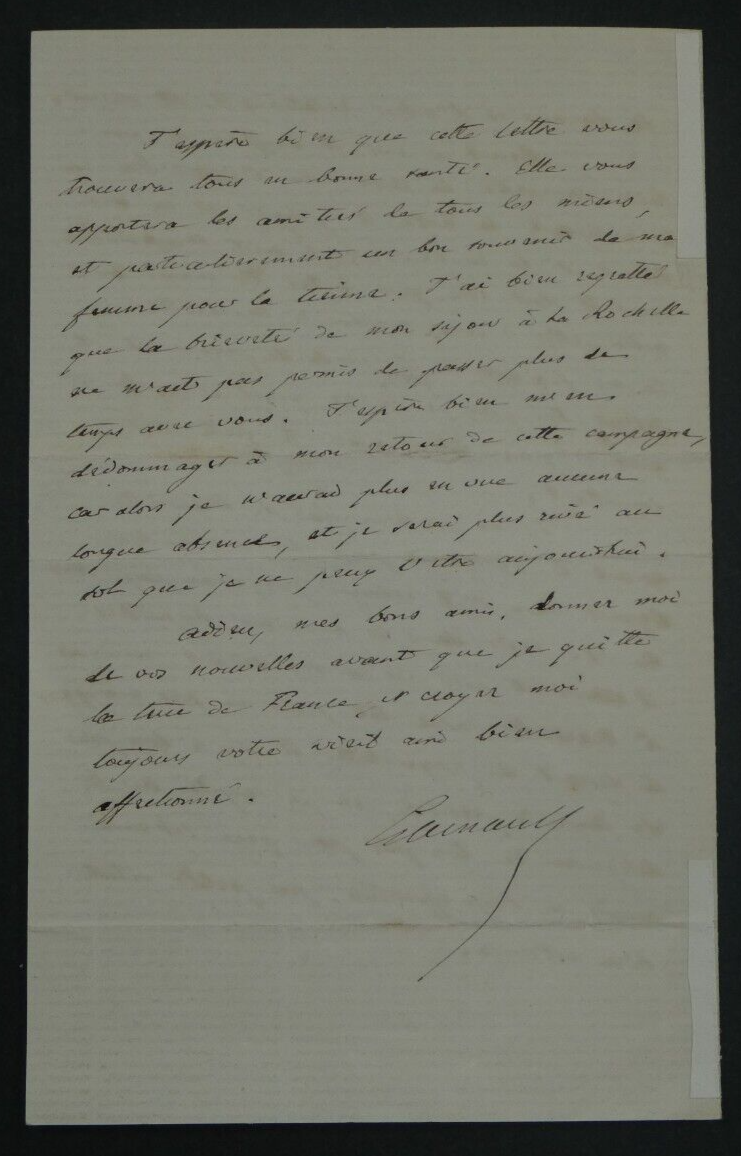 J'espère bien que cette lettre vous
trouvera tous en bonne santé. Elle vous
apportera les amitiés de tous les miens,
et particulièrement un bon souvenir de ma
femme pour la tienne. J'ai bien regretté
que la brièveté de mon séjour à La Rochelle
ne m'ait pas permis de passer plus de
temps avec vous. J'espère bien m'en
dédommager à mon retour de cette campagne,
car alors je n'aurai plus en vue aucune
longue absence, et je serai plus rivé au
sol que je ne peux l'être aujourd'hui.
Adieu, mes bons amis, donner moi
de vos nouvelles avant que je quitte
la terre de France, et croyez moi
toujours votre vieil ami bien
affectionné.